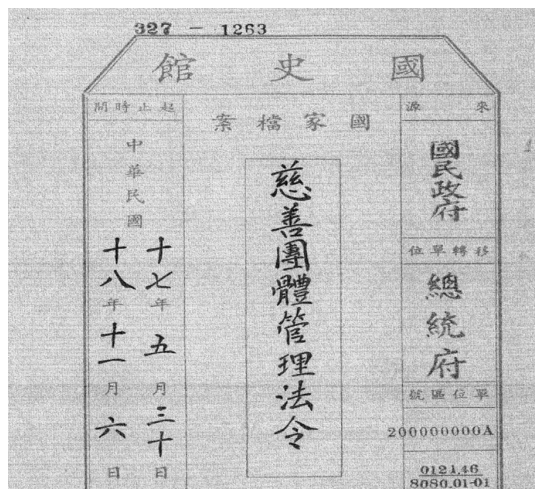 327 - 1263
國史館
來源
國民政府
移轉單位
總統府
單位區號
200000000A
0121.46
8080.01-01
國家檔案
慈善團體管理法令
起止時間
中華民國
十七年五月三十日
十八年十一月六日